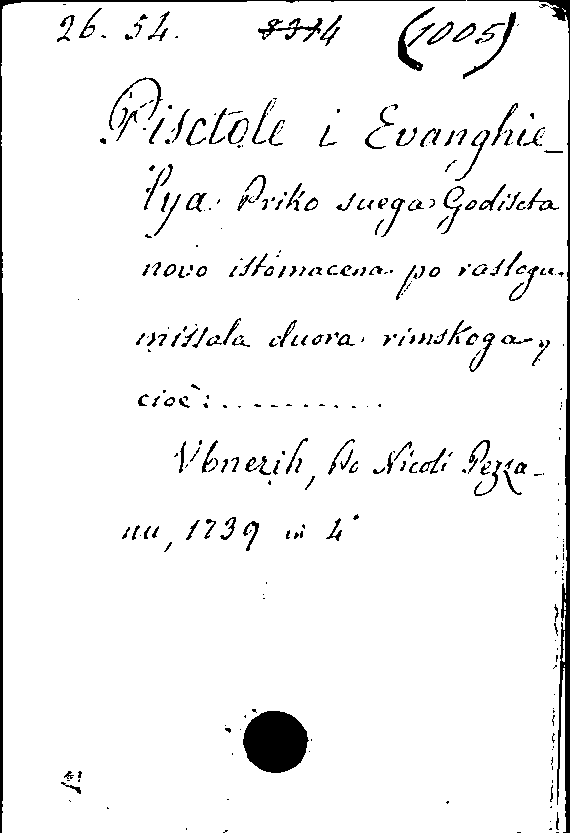 26. 54. 8314 (1005)
Pisctole i Evanghie_
lya. Priko suega Godiscta
novo istomacena po raslogu
missala duora rimskoga y
cioè: ...........
Vbnezih, Po Nicoli Pezza-
nu, 1739 in 4°